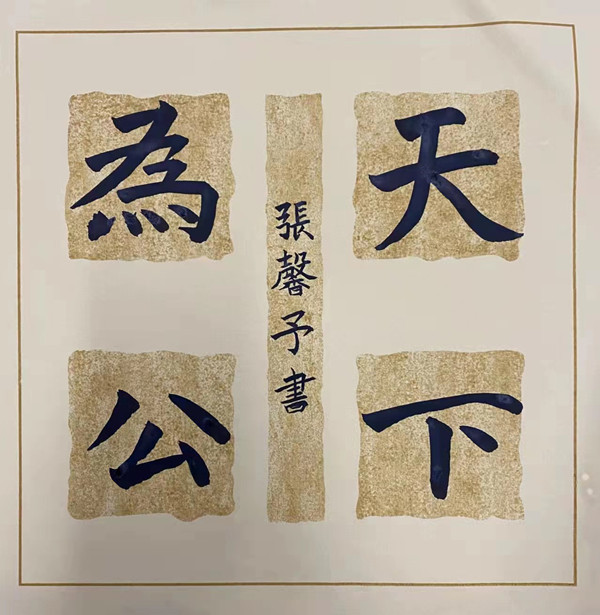 天下
為公
張馨予書